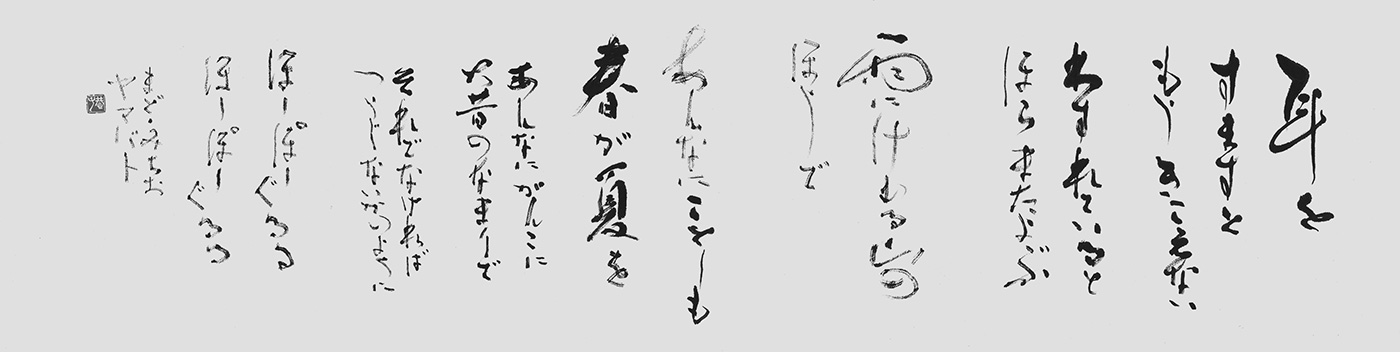 耳を
すますと
もうきこえない
わすれていると
ほらまたよぶ
雨にけむる
ほうで
あんなに
春が夏を
あんなにがんこに
大昔のなまりで
それでなければ
つうじないかのように
ほーぽー ぐるる
ほーぽー ぐるる
まど・みちお
ヤマバト